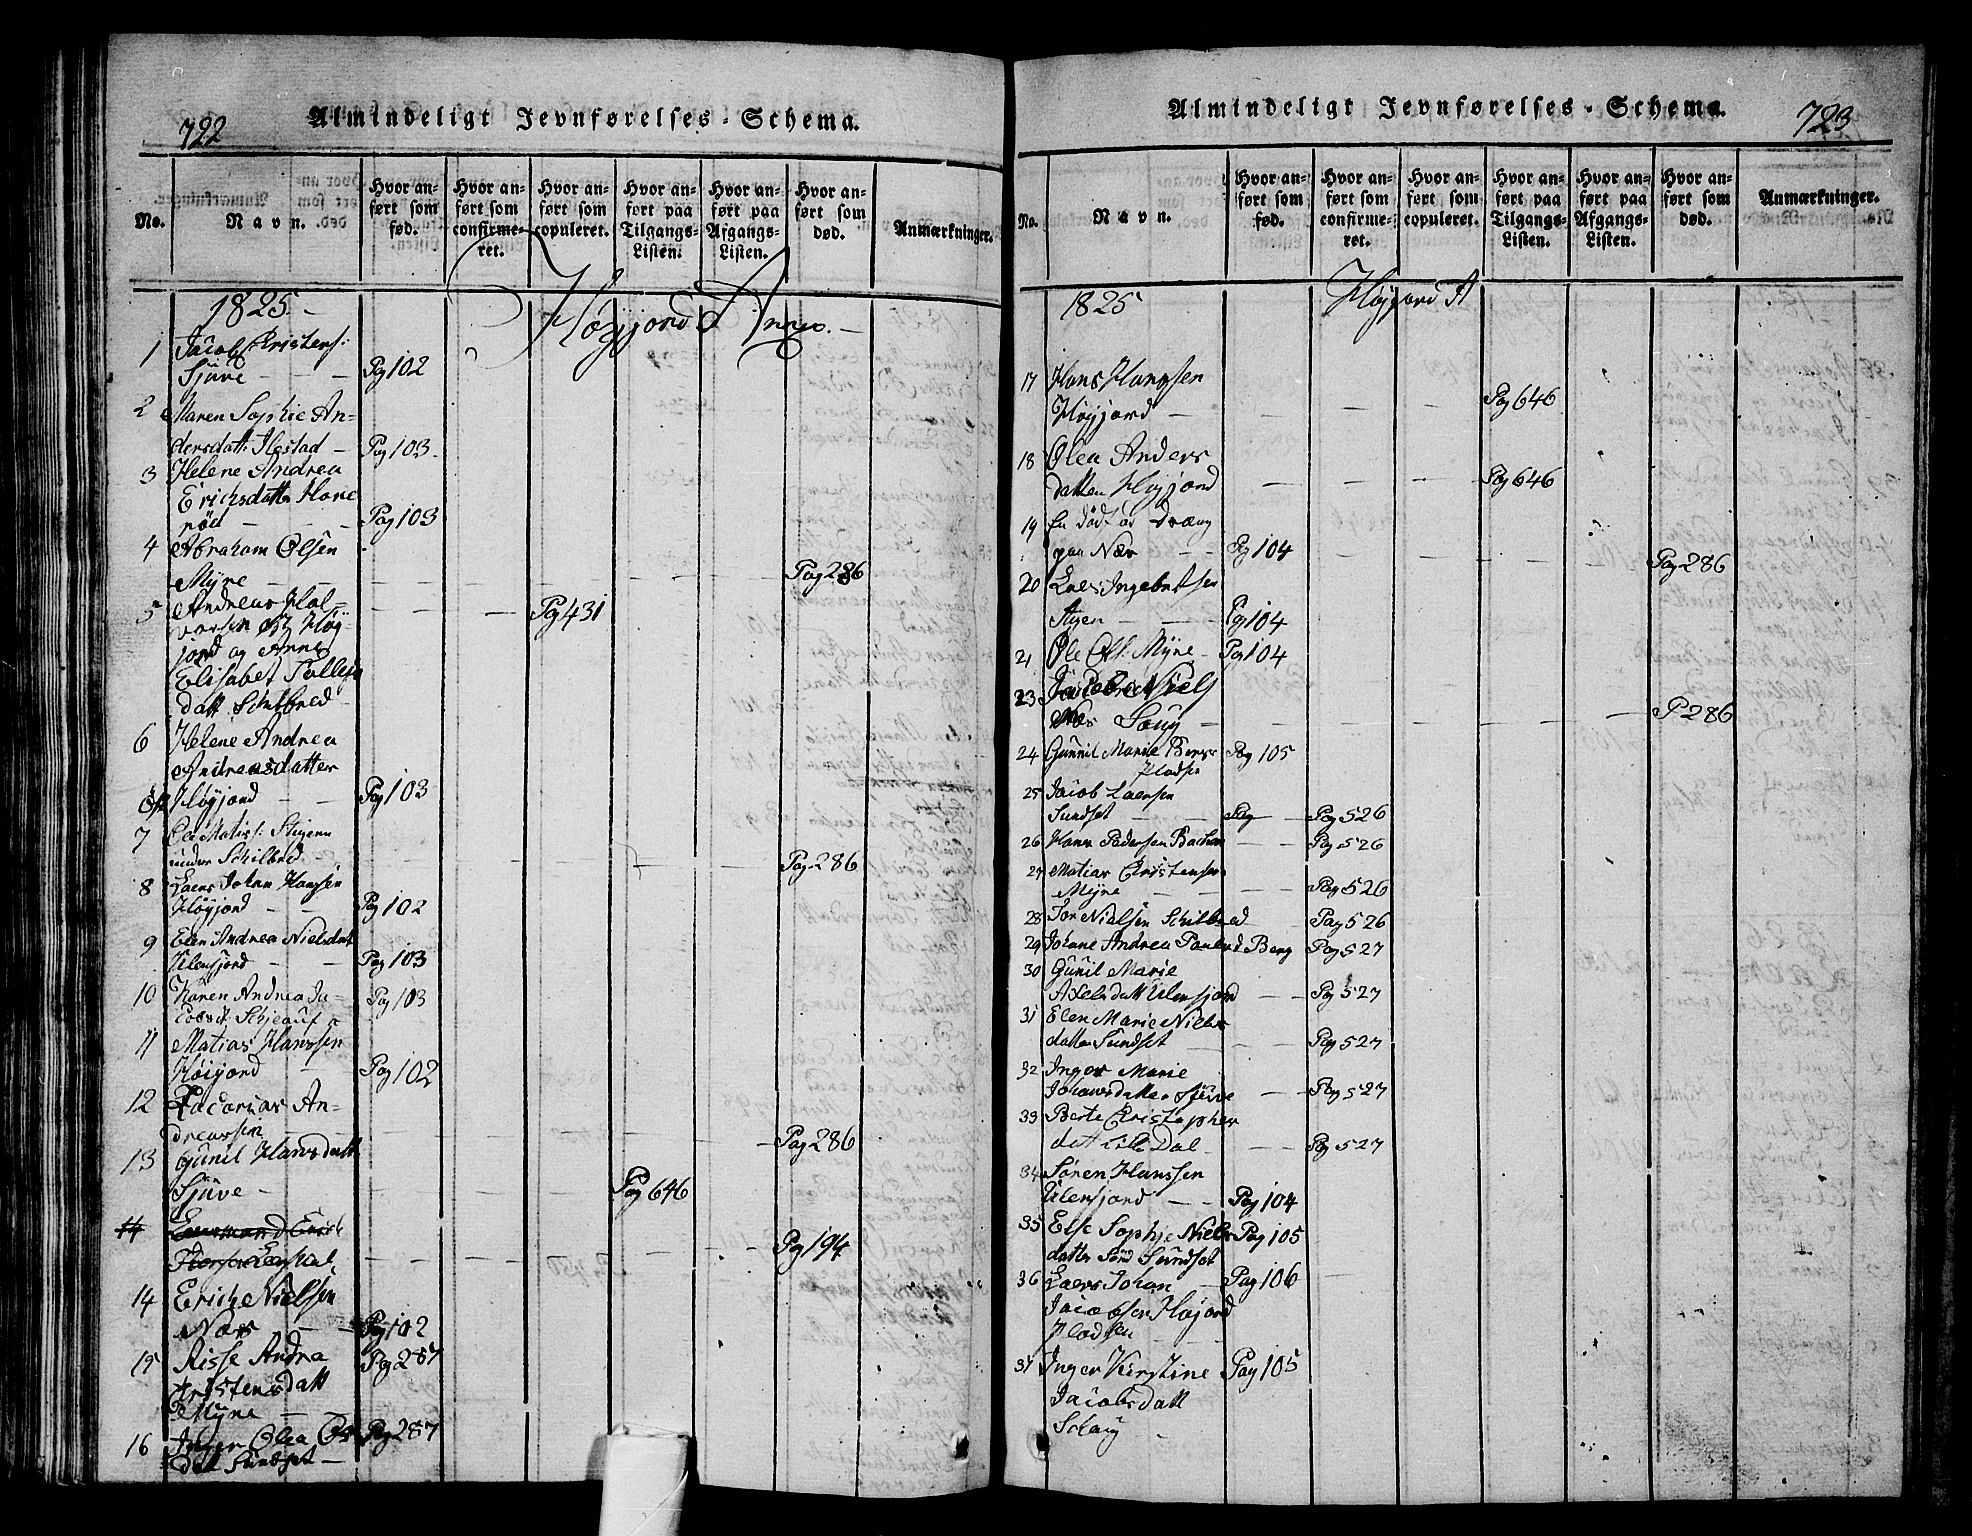 722 Almindeligt Jevnførelses-Schema.
No. Navn. Hvor anført som fød. Hvor anført som confirmeret. Hvor anført som copuleret. Hvor anført paa Tilgangs-Listen. Hvor anført paa Afgangs-Listen. Hvor anført som død. Anmærkninger.
1825. Høyjord Annex.
1 Jacob Cristens:
Sjüve Pag 102
2 Maren Sophie An-
dersdatt: Ilestad Pag 103
3 Helene Andrea
Erichsdatter Hane
rød Pag 103
4 Abraham Olsen
Myre Pag 286
5 Andreas Hal- Pag 431
vorsen Høy-
jord og Anne
Elisabet Tollefs
datt. Schilbred
6 Helene Andrea
Andreasdatter
Høyjord Pag 103
7 Ole Matis: Stigen
under Schilbred Pag 286
8 Laers Johan Hansen
Høyjord Pag 102
9 Elen Andrea Nielsdat
Ulensjord Pag 103
10 Karen Andrea Ja- Pag 103
cobsd:
11 Matias Hanssen
Höijord Pag 102
12 Zacarias An-
dreassen Pag 286
13 Gunil Hansdatt
Sjüve Pag 646
14
Pag 194
14 Erich Nielsen
Næs Pag 102
15 Aisse Andra Pag 287
Kristensdatt
Myre
16 Inger Olea Pag 287
datt Sundset
Almindeligt Jevnførelses-Schema. 723
No. Navn. Hvor anført som fød. Hvor anført som confirmeret. Hvor anført som copuleret. Hvor anført paa Tilgangs-Listen. Hvor anført paa Afgangs-Listen. Hvor anført som død. Anmærkninger.
1825 Høyjord A
17 Hans Hanssen
Høyjord Pag 646
18 Olea Anders
datten Høyjord Pag 646
19 En dødfød Dræng
paa Næs Pag 104 Pag 286
20 Laers Ingebretsen
Stigen Pag 104
21 Ole Ols: Myre Pag 104
23 Niels
Saug P 286
24 Gunnil Marie Bergs Pag 105
Pladsen
25 Jacob Laersen
Sundset Pag Pag 526
26 Hans Pedersen Bachan Pag 526
27 Matias Christensen
Myre Pag 526
28 Tor Nielsen Schilbred Pag 526
29 Johane Andrea Berg Pag 527
30 Gunil Marie
Axelsdatt Ulensjord Pag 527
31 Elen Marie Niels
datter Sundset Pag 527
32 Inger Marie
Johansdatter Sjüve Pag 527
33 Berte Christopher
datt Lille Dal Pag 527
34 Søren Hanssen
Ulensjord Pag 104
35 Else Sophje Niels Pag 105
datter Sundset
36 Laers Johan Pag 106
Jacobsen Høijord
Pladsen
37 Inger Kirstine Pag 105
Jacobsdatt
Schaug